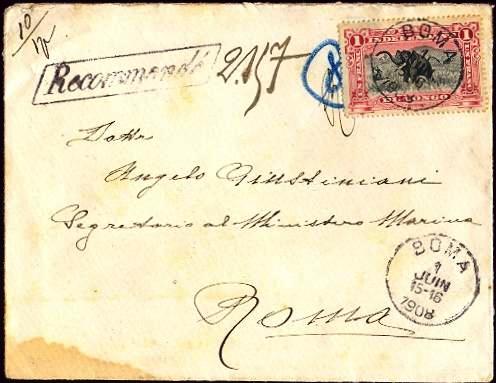 10/
Recommandé
2.157
1 1
DU CONGO
BOMA
Dottr
Angelo Giustiniani
Segretario al Ministero Marina
Roma
BOMA
1
JUIN
15-16
1908